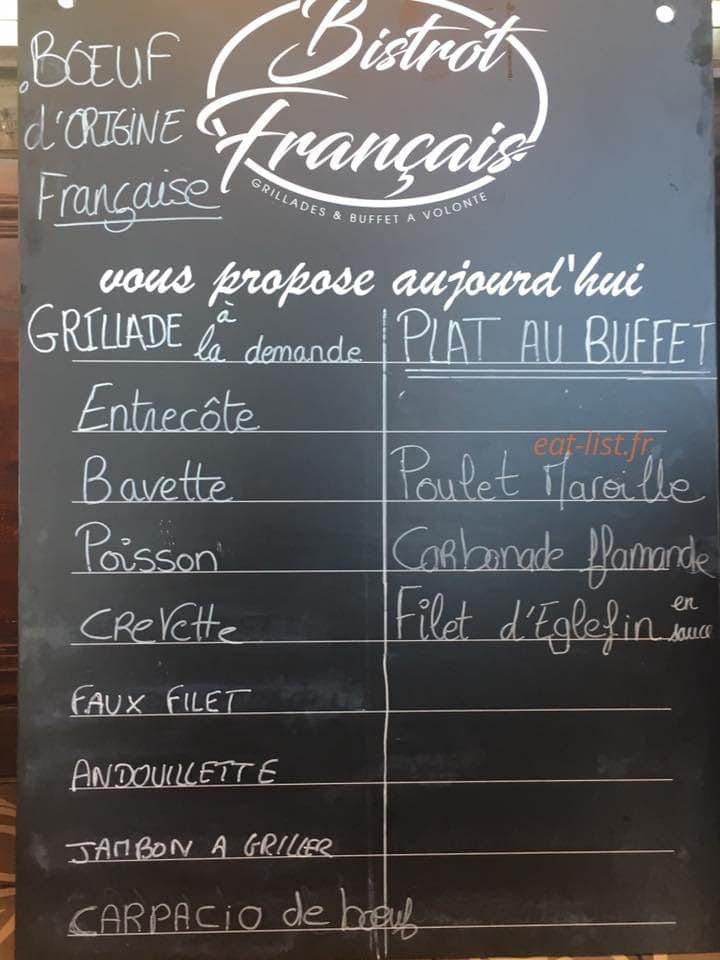 BŒUF
d'ORIGINE
Française
Bistrot
Français
GRILLADES & BUFFET A VOLONTE
vous propose aujourd'hui
GRILLADE à la demande
PLAT AU BUFFET
Entrecôte
eat-list.fr
Bavette
Poulet Maroille
Poisson
Carbonade flamande
CREVEttE
Filet d'Eglefin en sauce
FAUX FILET
ANDOUILLETTE
JAMBON A GRILLER
CARPACIO de bœuf